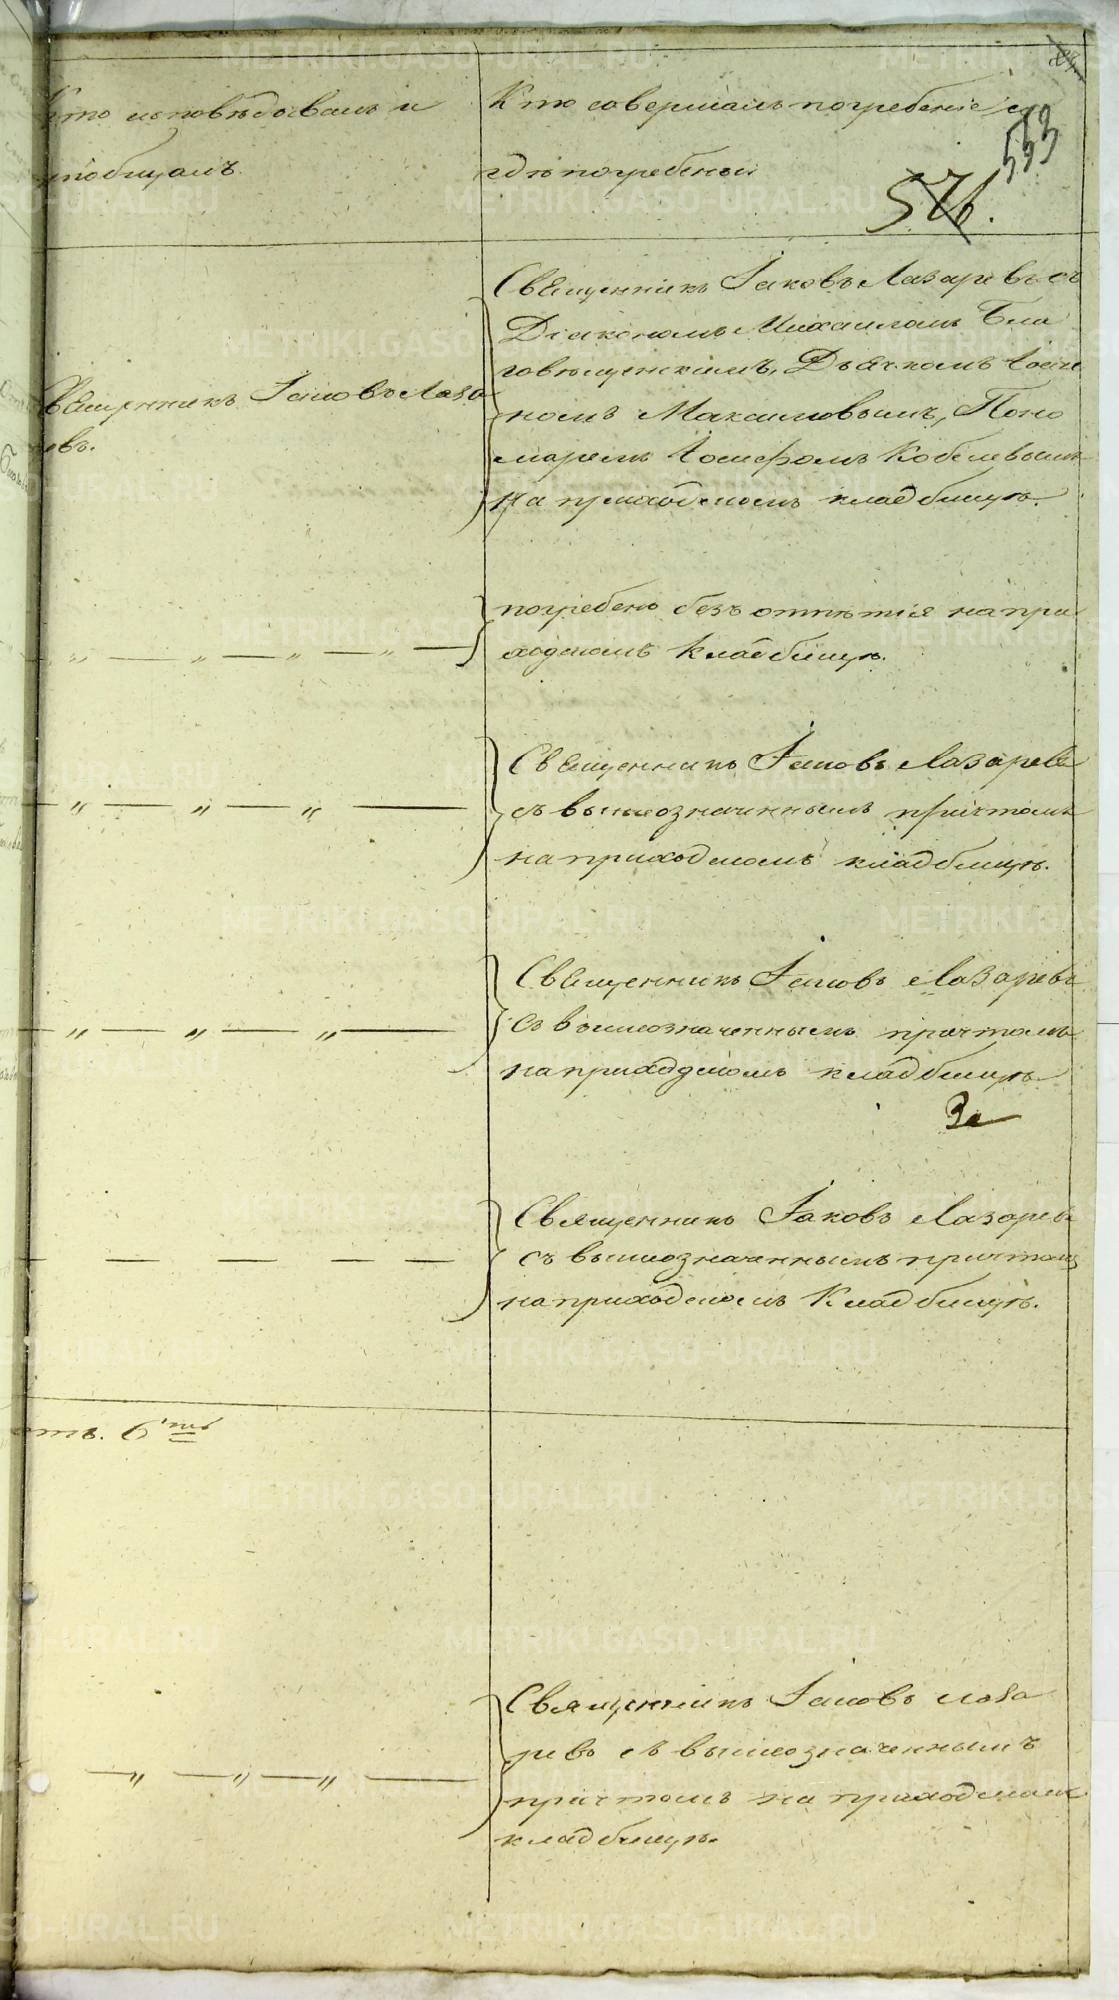 Кто исповѣдовалъ и
пріобщалъ.
Кто совершалъ погребеніе и
гдѣ погребены
553
576.
Священникъ Іаковъ Лаза
евъ.
Священникъ Іаковъ Лазаревъ съ
Діакономъ Михаиломъ Бла
говѣщенскимъ, Дьячкомъ Іоан
номъ Максимовымъ, Поно
маремъ Іосифомъ Кобелевымъ
На приходскомъ кладбищѣ.
погребенъ безъ отпѣтія на при
ходскомъ Кладбищѣ.
Священникъ Іаковъ Лазаревъ
съ вышеозначеннымъ причтомъ
на приходскомъ кладбищѣ.
Священникъ Іаковъ Лазаревъ
съ вышеозначеннымъ причтомъ
на приходскомъ кладбищѣ
За
Священникъ Іаковъ Лазаревъ
съ вышеозначеннымъ причтомъ
на приходскомъ Кладбищѣ.
Священникъ Іаковъ Лаза
ревъ съ вышеозначеннымъ
причтомъ на приходскомъ
кладбищѣ.
METRIKI.GASO-URAL.RU